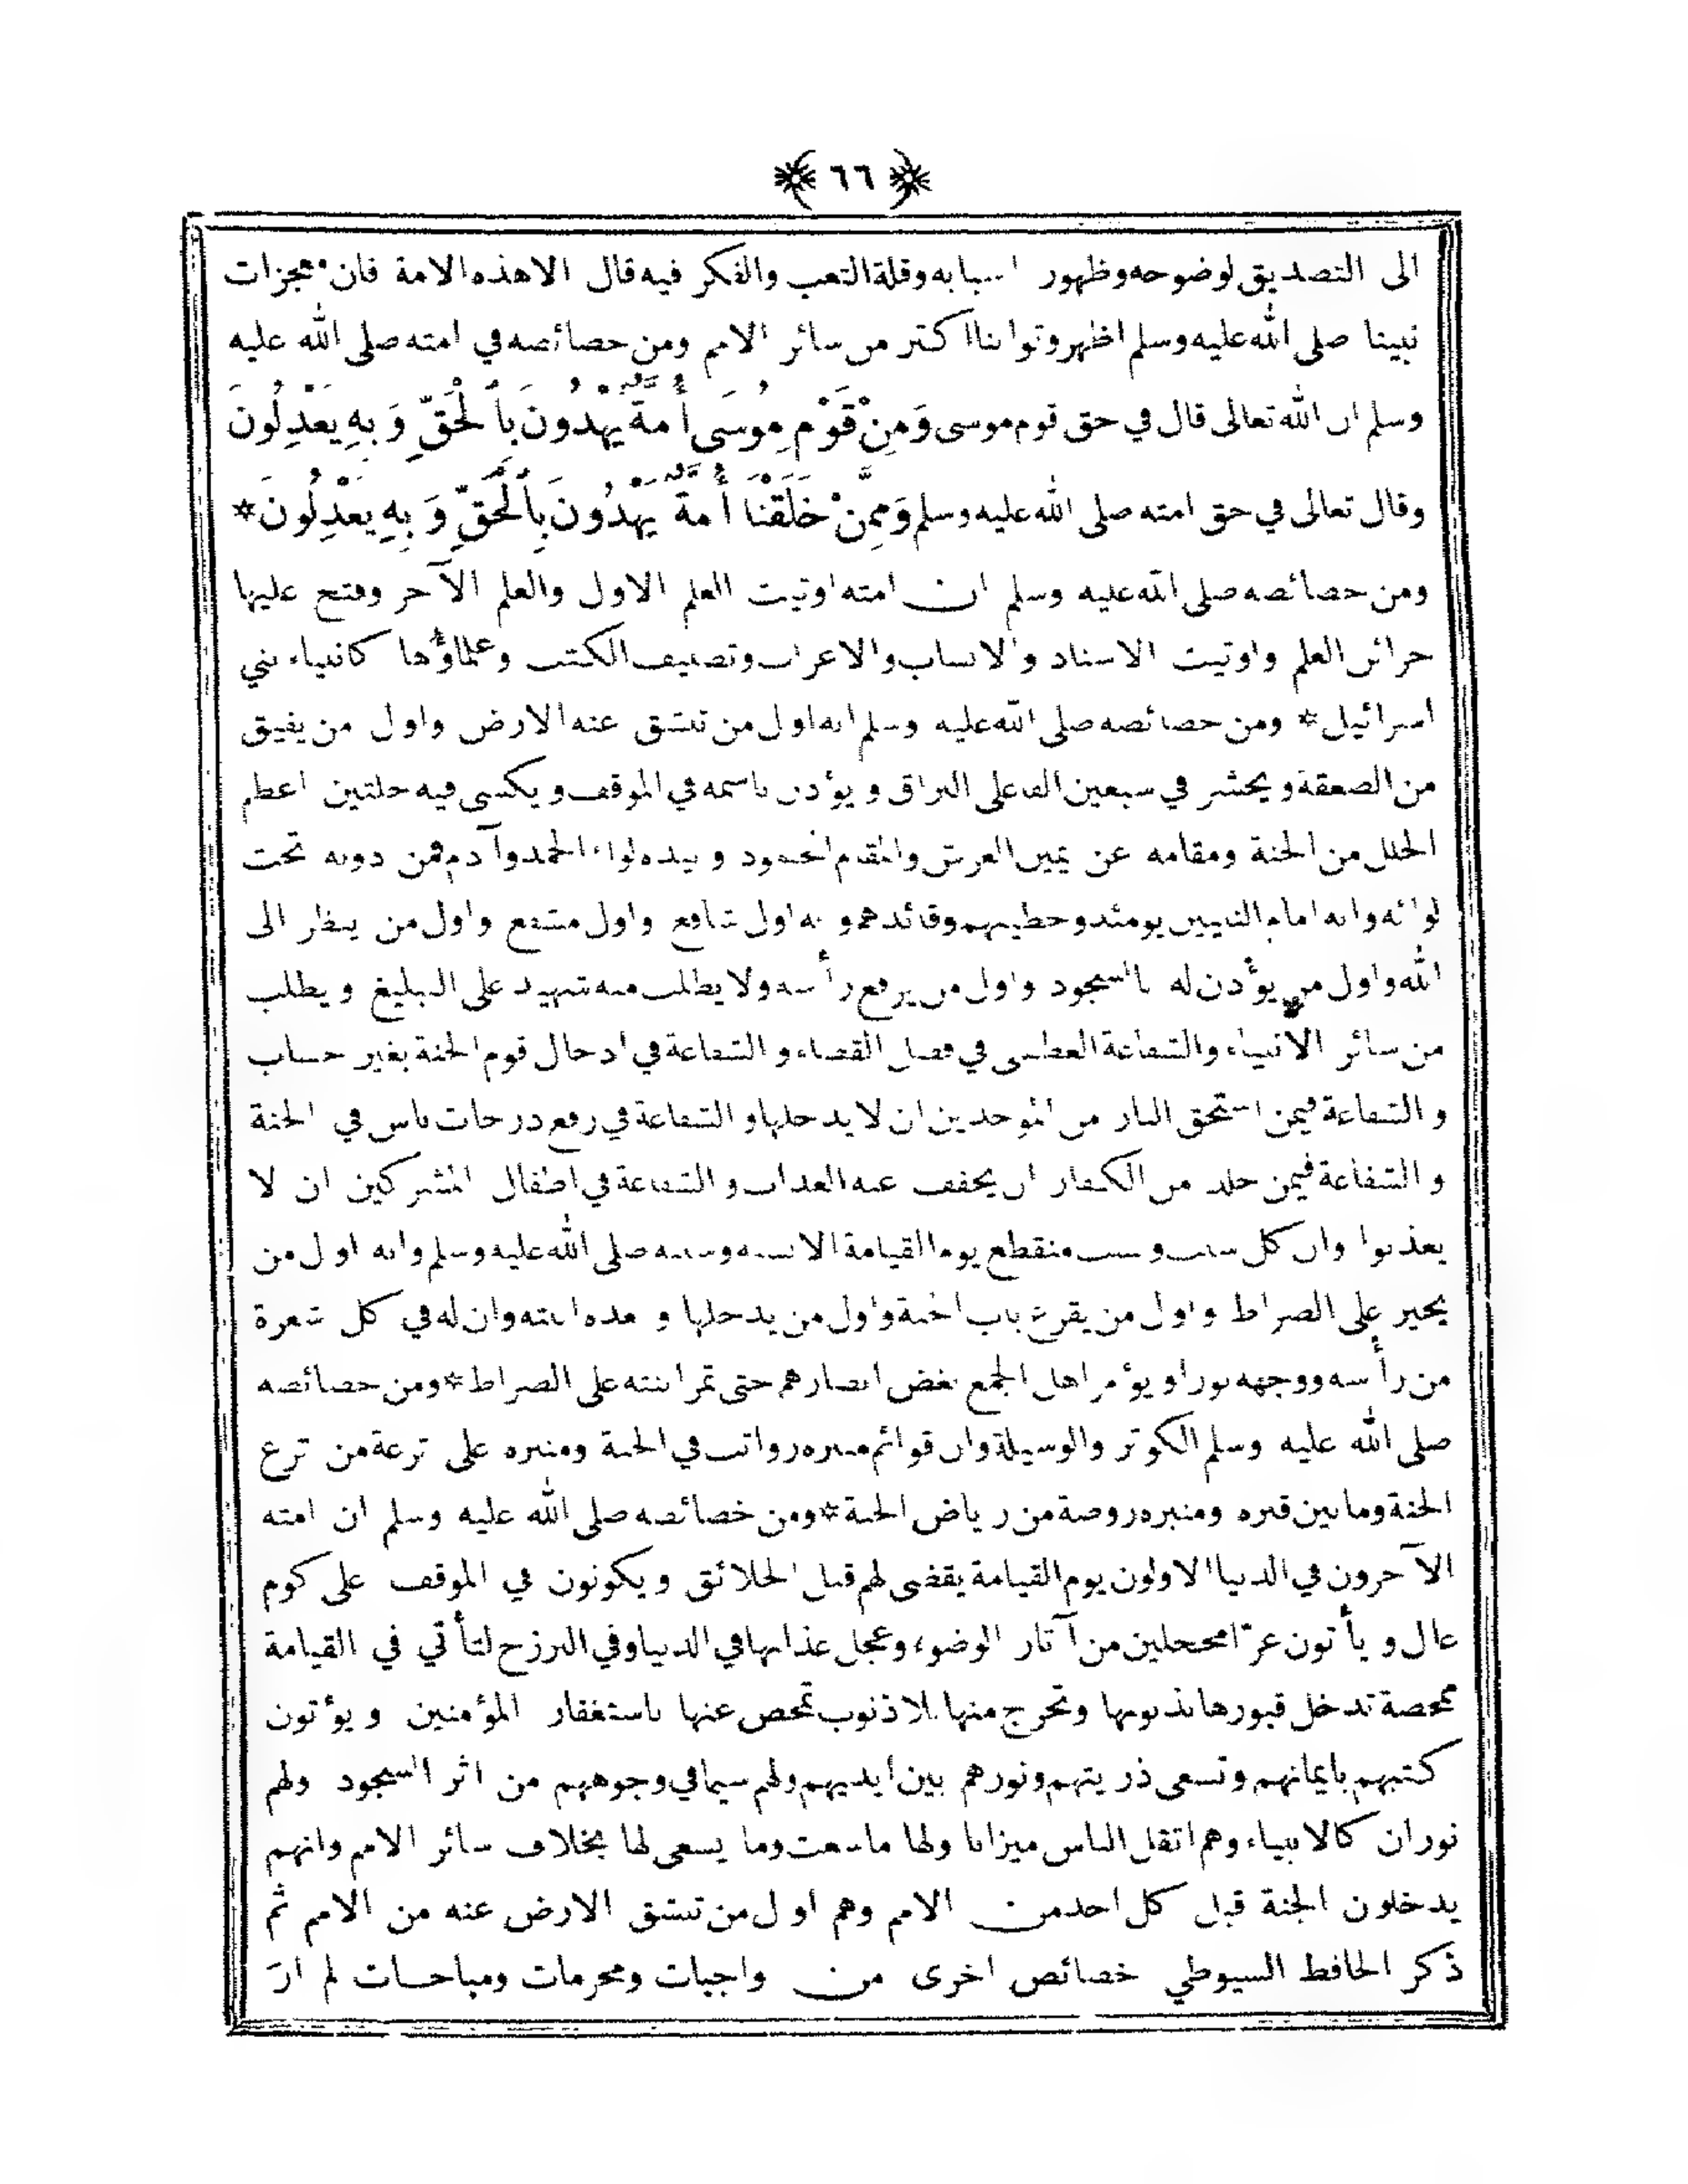 ٦٦
الى التصديق لوضوحه وظهور اسبابه وقلة التعب والفكر فيه قال الا هذه الامة فان معجزات
نبينا صلى الله عليه وسلم اظهر وثوابنا اكثر من سائر الامم ومن خصائصه في امته صلى الله عليه
وسلم ان الله تعالى قال في حق قوم موسى وَمِنْ قَوْمِ مُوسَى أُمَّةٌ يَهْدُونَ بِٱلْحَقِّ وَبِهِ يَعْدِلُونَ
وقال تعالى في حق امته صلى الله عليه وسلم وَمِمَّنْ خَلَقْنَا أُمَّةٌ يَهْدُونَ بِٱلْحَقِّ وَبِهِ يَعْدِلُونَ *
ومن خصائصه صلى الله عليه وسلم ان امته اوتيت العلم الاول والعلم الآخر وفتح عليها
خزائن العلم واوتيت الاسناد والانساب والاعراب وتصنيف الكتب وعلماؤها كانبياء بني
اسرائيل * ومن خصائصه صلى الله عليه وسلم انه اول من تنشق عنه الارض واول من يفيق
من الصعقة ويحشر في سبعين الف على البراق ويؤذن باسمه في الموقف ويكسى فيه حلتين اعظم
الحلل من الجنة ومقامه عن يمين العرش والمقام المحمود وبيده لواء الحمد وآدم فمن دونه تحت
لوائه وانه امام النبيين يومئذ وخطيبهم وقائدهم وانه اول شافع واول مشفع واول من ينظر الى
الله واول من يؤذن له بالسجود واول من يرفع رأسه ولا يطلب منه شهيد على التبليغ ويطلب
من سائر الانبياء والشفاعة العظمى في فصل القضاء والشفاعة في ادخال قوم الجنة بغير حساب
والشفاعة فيمن استحق النار من الموحدين ان لا يدخلها والشفاعة في رفع درجات ناس في الجنة
والشفاعة فيمن خلد من الكفار ان يخفف عنه العذاب والشفاعة في اطفال المشركين ان لا
يعذبوا وان كل سبب ونسب منقطع يوم القيامة الا سببه ونسبه صلى الله عليه وسلم وانه اول من
يجيز على الصراط واول من يقرع باب الجنة واول من يدخلها وبعده ابنته وان له في كل شعرة
من رأسه ووجهه نورا ويؤمر اهل الجمع بغض ابصارهم حتى تمر ابنته على الصراط * ومن خصائصه
صلى الله عليه وسلم الكوثر والوسيلة وان قوائم منبره رواتب في الجنة ومنبره على ترعة من ترع
الجنة وما بين قبره ومنبره روضة من رياض الجنة * ومن خصائصه صلى الله عليه وسلم ان امته
الآخرون في الدنيا الاولون يوم القيامة يقضى لهم قبل الخلائق ويكونون في الموقف على كوم
عال ويأتون غرّا محجلين من آثار الوضوء وعجل عذابها في الدنيا وفي البرزخ لتأتي في القيامة
ممحصة تدخل قبورها بذنوبها وتخرج منها بلا ذنوب تمحص عنها باستغفار المؤمنين ويؤتون
كتبهم بايمانهم وتسعى ذريتهم ونورهم بين ايديهم ولهم سيما في وجوههم من اثر السجود ولهم
نوران كالانبياء وهم اثقل الناس ميزانا ولها ما سعت وما يسعى لها بخلاف سائر الامم وانهم
يدخلون الجنة قبل كل احد من الامم وهم اول من تنشق الارض عنه من الامم ثم
ذكر الحافظ السيوطي خصائص اخرى من واجبات ومحرمات ومباحات لم ارَ